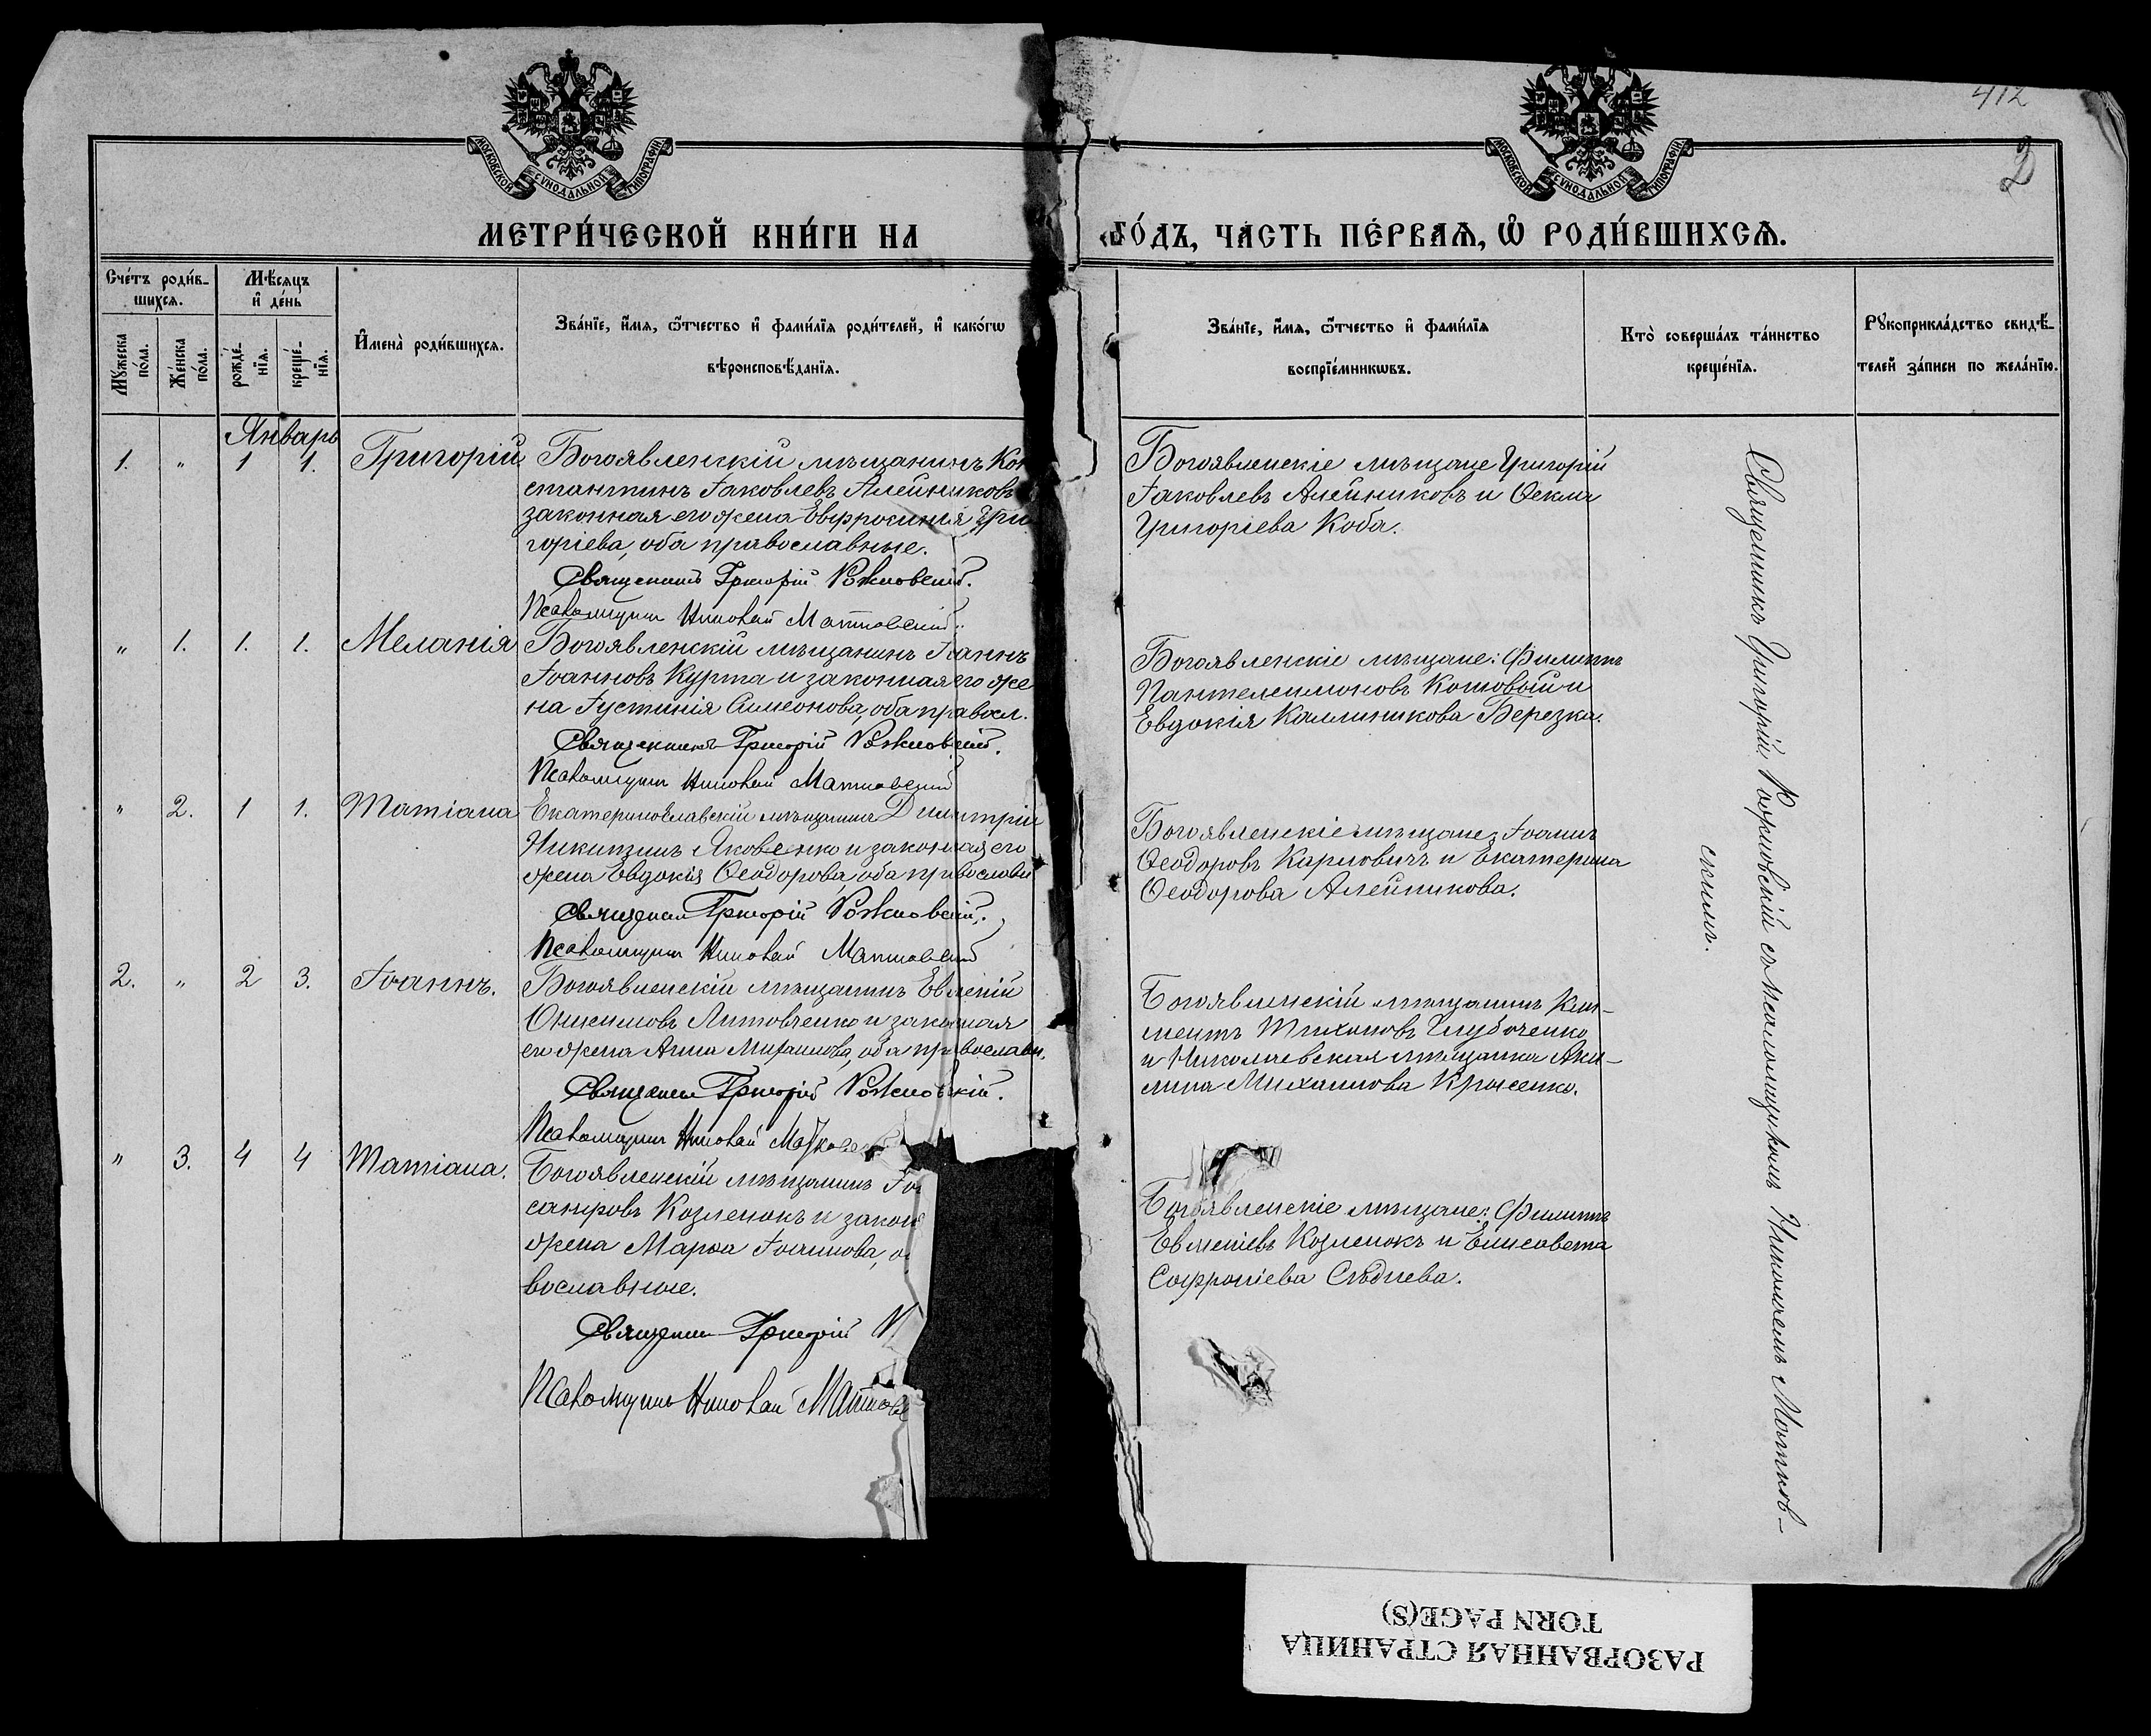 412
2
МОСКОВСКОЙ СУНОДАЛЬНОЙ ТИПОГРАФІИ
МОСКОВСКОЙ СУНОДАЛЬНОЙ ТИПОГРАФІИ
МЕТРИ́ЧЕСКОЙ КНИ́ГИ НА
ГО́ДЪ, ЧАСТЬ ПЕ́РВАѦ, Ѡ РОДИ́ВШИХСѦ.
Сче́тъ роди́в-
шихсѧ.
Мѣ́сѧцъ
и҆ де́нь
Мꙋ́жеска
по́ла.
Же́нска
по́ла.
рожде́-
нїѧ.
креще́-
нїѧ.
И҆мена̀ роди́вшихсѧ.
Зва́нїе, и҆́мѧ, ѻ҆́тчество и҆ фами́лїѧ роди́телей, и҆ како́гѡ
вѣроисповѣ́данїѧ.
Зва́нїе, и҆́мѧ, ѻ҆́тчество и҆ фами́лїѧ
воспрїе́мникѡвъ.
Кто̀ соверша́лъ та́инство
креще́нїѧ.
Рꙋкоприкла́дство свидѣ́-
телей за́писи по жела́нїю.
Январь
1. " 1 1. Григорій
Богоявленскій мѣщанинъ Кон
стантинъ Іаковлевъ Алейниковъ
законная его жена Евфросинія Гри
горіева, оба православные.
Священникъ Григорій Рожновскій.
Псаломщикъ Николай Матковскій
Богоявленскіе мѣщане Григорій
Іаковлевъ Алейниковъ и Ѳекла
Григоріева Коба.
" 1. 1. 1. Меланія
Богоявленскій мѣщанинъ Іоаннъ
Іоанновъ Курта и законная его же
на Іустинія Симеонова, оба правосл.
Священникъ Григорій Рожновскій.
Псаломщикъ Николай Матковскій
Богоявленскіе мѣщане: Филиппъ
Пантелеимоновъ Котовый и
Евдокія Каллиникова Березка.
" 2. 1 1. Татіана
Екатеринославскій мѣщанинъ Димитрій
Никитинъ Яковенко и законная его
жена Евдокія Ѳеодорова, оба православн
Священникъ Григорій Рожновскій.
Псаломщикъ Николай Матковскій
Богоявленскіе мѣщане: Іоаннъ
Ѳеодоровъ Карповичъ и Екатерина
Ѳеодорова Алейникова.
2. " 2 3. Іоаннъ.
Богоявленскій мѣщанинъ Евменій
Онисимовъ Литовченко и законная
его жена Анна Михаилова, оба православн.
Священникъ Григорій Рожновскій.
Псаломщикъ Николай Матковс
Богоявленскій мѣщанинъ Кли-
ментъ Тихоновъ Глубоченко
и Николаевская мѣщанка Аки-
лина Михаилова
" 3. 4 4 Татіана.
Богоявленскій мѣщанинъ Іо
Козленокъ и закон
жена Марѳа Іоаннова, о
вославные.
Священникъ Григорій Р
Псаломщикъ Николай Матковс
Богоявленскіе мѣщане: Филиппъ
Евменіевъ Козленокъ и Елисавета
Софроніева Слѣднева.
Священникъ Григорій Рожновскій съ псаломщикомъ Николаемъ Матков-
скимъ.
РАЗОРВАННАЯ СТРАНИЦА
TORN PAGE(S)